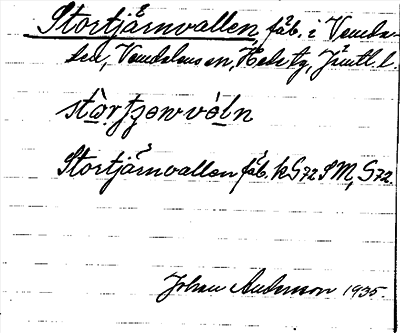 Stortjärnvallen, fäb. i Vemda-
len, Vemdalens sn, Hede tg, Jämtl. l.
Stortjärnvallen fäb. k G72 SM, G72
Johan Anderson 1935.